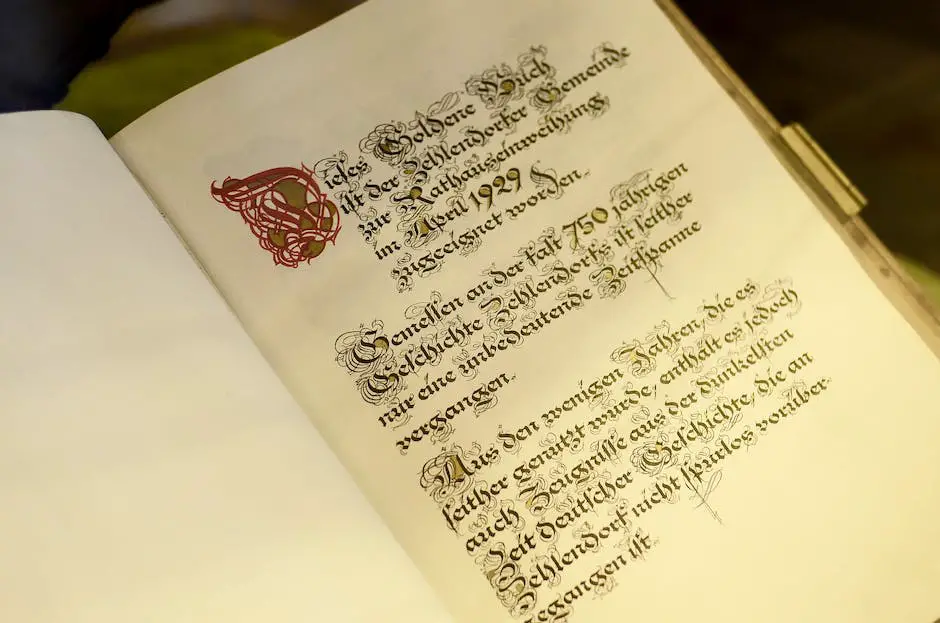 Dieses Goldene Buch
ist der Zehlendorfer Gemeinde
zur Rathauseinweihung
im April 1929
zugeeignet worden.
Gemessen an der fast 750 jährigen
Geschichte Zehlendorfs ist seither
nur eine unbedeutende Zeitspanne
vergangen.
Aus den wenigen Jahren, die es
seither genutzt wurde, enthält es jedoch
auch Zeugnisse aus der dunkelsten
Zeit deutscher Geschichte, die an
Zehlendorf nicht spurlos vorüber-
gegangen ist.